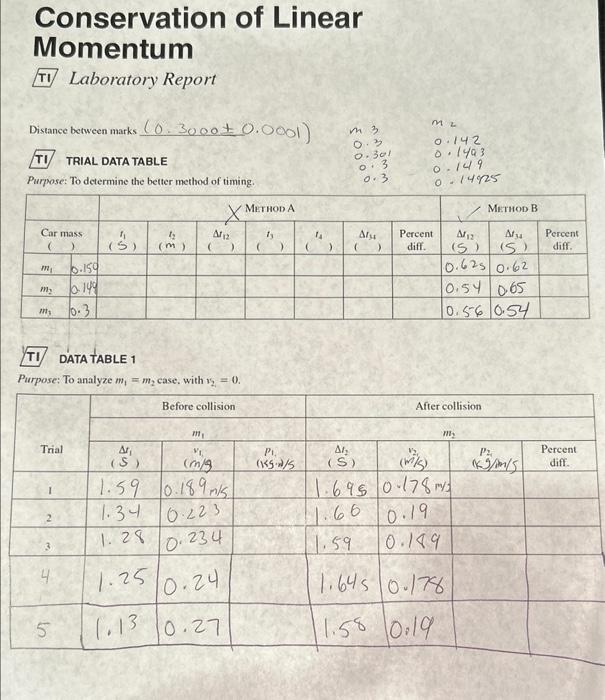 Conservation of Linear
Momentum
TI Laboratory Report
Distance between marks (0.3000 ± 0.0001)
m 3
0.3
0.301
0.3
0.3
m 2
0.142
0.1493
0.149
0.14925
TI TRIAL DATA TABLE
Purpose: To determine the better method of timing.
X METHOD A ✓ METHOD B
Car mass t₁ t₂ Δt₁₂ t₃ t₄ Δt₃₄ Percent Δt₁₂ Δt₃₄ Percent
( ) (S) (m) ( ) ( ) ( ) ( ) diff. (S) (S) diff.
m₁ 0.159 0.62s 0.62
m₂ 0.149 0.54 0.65
m₃ 0.3 0.56 0.54
TI DATA TABLE 1
Purpose: To analyze m₁ = m₂ case, with v₂ᵢ = 0.
Before collision After collision
m₁ m₂
Trial Δt₁ v₁ᵢ p₁ᵢ Δt₂ v₂ p₂ Percent
(S) (m/s) (kg·m/s (S) (m/s) (kg/m/s diff.
1 1.59 0.189 m/s 1.69s 0.178 m/s
2 1.34 0.223 1.60 0.19
3 1.28 0.234 1.59 0.189
4 1.25 0.24 1.64s 0.178
5 1.13 0.27 1.58 0.19